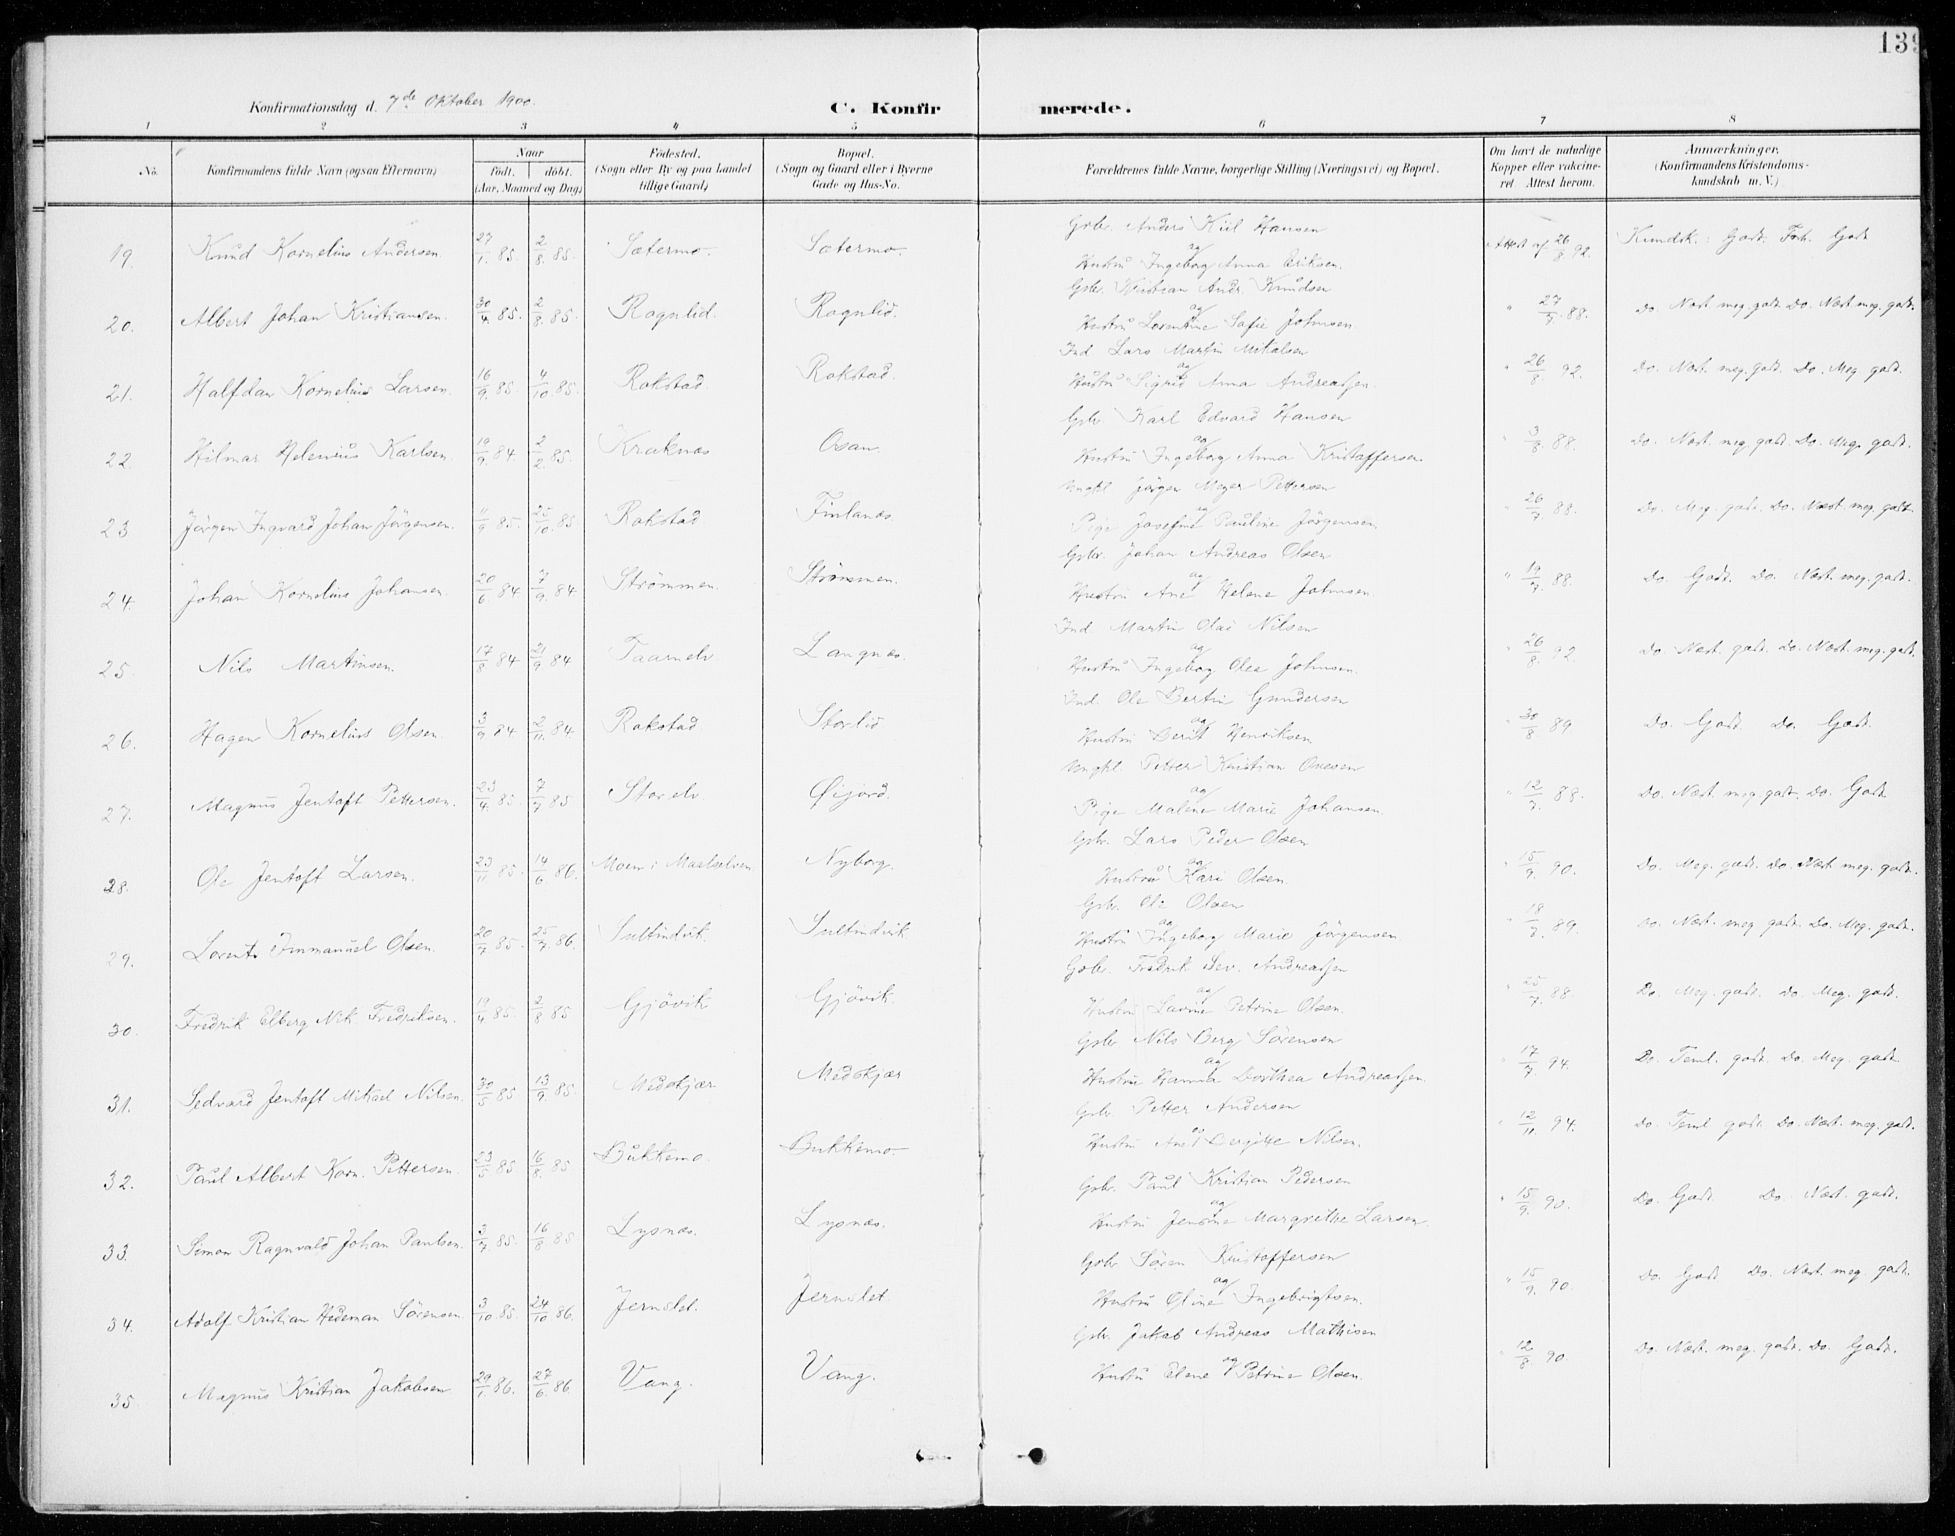 139
Konfirmationsdag d. 7de Oktober 1900.
C. Konfirmerede.
1 2 3 4 5 6 7 8
No.
Konfirmandens fulde Navn (ogsaa Efternavn)
Naar
født. døbt.
(Aar, Maaned og Dag)
Fødested.
(Sogn eller By og paa Landet
tillige Gaard)
Bopæl.
(Sogn og Gaard eller i Byerne
Gade og Hus-No.
Forældrenes fulde Navne, borgerlige Stilling (Næringsvei) og Bopæl.
Om havt de naturlige
Kopper eller vakcine-
ret Attest herom.
Anmærkninger.
(Konfirmandens Kristendoms-
kundskab m. V.)
Gbr. Anders Kiil Hansen
19. Knud Kornelius Andersen. 27/1. 85. 2/8. 85. Sætermo. Sætermo. og Attest af 26/8 92. Kundsk.: Godt. Forh. Godt
Hustru Ingeborg Anna Eriksen.
Gbr. Kristian Andr. Knudsen
20. Albert Johan Kristiansen. 30/4. 85. 2/8. 85. Rognlid. Rognlid. og " 27/7. 88. Do. Næst meg. godt. Do. Næst meg. godt.
Hustru Lorentine Sofie Johnsen.
Ind. Lars Martin Mikalsen
21. Halfdan Kornelius Larsen. 16/9. 85. 4/10. 85. Rokstad. Rokstad. og " 26/8 92. Do. Næst. meg. godt. Do. Meg. godt.
Hustru Sigrid Anna Andreassen.
Gbr. Karl Edvard Hansen
22. Hilmar Helenius Karlsen. 19/9. 84. 2/2. 85. Kraknæs Osan. og " 3/8. 88. Do. Næst. meg. godt. Do. Meg. godt.
Hustru Ingeborg Anna Kristoffersen.
Ungkl. Jørgen Meyer Pettersen
23 Jörgen Ingvard Johan Jörgensen. 11/9. 85. 25/10. 85 Rokstad Finlands. og " 26/7 88. Do. Meg. godt. Do. Næst. meg. godt.
Pige Josefine Pauline Jörgensen.
Gbr. Johan Andreas Olsen
24. Johan Kornelius Johansen. 20/6. 84 7/9. 84 Strömmen. Strömmen. og " 19/7. 88. Do. Godt. Do. Næst. meg. godt.
Hustru Ane Helene Johnsen.
Ind. Martin Olai Nilsen
25. Nils Martinsen. 17/8 84 21/9 84 Taarnelv Langnæs. og " 26/8. 92. Do. Næst. godt. Do. Næst. meg. godt.
Hustru Ingeborg Olea Johnsen.
Ind. Ole Bertin Gundersen
26. Hagen Kornelius Olsen. 3/9 84 2/11. 84. Rokstad. Storlid og " 30/8 89 Do. Godt. Do. Godt.
Hustru Berit Henriksen
Ungkl. Petter Kristian Ovesen
27. Magnus Jentoft Pettersen. 23/4. 85. 7/7 85 Storelv Øijord. og " 12/7. 88. Do. Næst. meg. godt. Do. Godt
Pige Malene Marie Johansen
Gbr. Lars Peder Olsen
28. Ole Jentoft Larsen. 23/11 85. 14/6 86. Moen i Maalselven Nyborg. og " 15/9. 90. Do. Meg. godt. Do. Næst meg. godt.
Hustru Kari Olsen.
Gbr. Ole Olsen
29. Lorents Immanuel Olsen. 20/7 85. 25/7. 86. Sultindvik. Sultindvik og " 18/7. 89. Do. Næst. meg godt. Do. Meg. godt.
Hustru Ingeborg Marie Jörgensen.
Gbr. Fredrik Sev. Andreassen
30. Fredrik Elberg Nik. Fredriksen. 19/4 85. 2/8 85 Gjövik Gjövik. og " 25/7. 88. Do Meg. godt. Do. Meg. godt.
Hustru Lavine Petrine Olsen.
Gbr. Nils Berg Sörensen
31. Sedvard Jentoft Mikael Nilsen. 30/5 85. 13/9. 85. Medskjær Medskjær og " 17/7. 94. Do. Teml. godt. Do. Meg. godt.
Hustru Hanna Dorthea Andreassen.
Gbr. Petter Andersen
32. Paul Albert Korn. Pettersen. 23/5 85 16/8. 85 Bukkemo. Bukkemo. og " 12/11. 94. Do. Teml godt. Do. Næst. meg. godt.
Hustru Ane Bergitte Nilsen.
Gbr. Paul Kristian Pedersen
33. Simon Ragnvald Johan Paulsen. 3/7 85. 16/8 85 Lysnæs. Lysnæs. og " 15/9. 90. Do. Godt. Do. Næst. godt.
Hustru Jensine Margrethe Larsen.
Gbr. Sören Kristoffersen
34. Adolf Kristian Hedeman Sörensen 3/10 85. 24/10 86. Jernslet. Jernslet. og " 15/9. 90. Do. Godt Do. Næst. meg. godt.
Hustru Oline Ingebrigtsen.
Gbr. Jakob Andreas Mathisen
35. Magnus Kristian Jakobsen 29/1. 86. 27/6. 86. Vang. Vang. og " 12/8 90. Do. Næst. meg. godt. Do. Godt.
Hustru Elene Petrine Olsen.